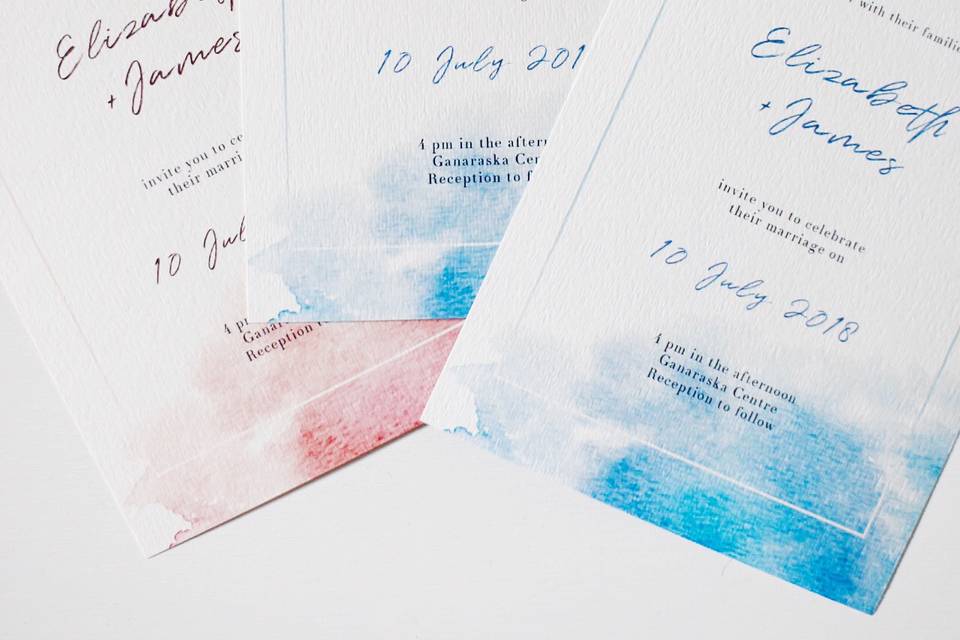 Elizabeth
+ James
invite you to ce
their marri
10 Jul
4 p
Ganar
Reception t
10 July 201
4 pm in the after
Ganaraska Cen
Reception to f
with their familie
Elizabeth
+ James
invite you to celebrate
their marriage on
10 July 2018
4 pm in the afternoon
Ganaraska Centre
Reception to follow